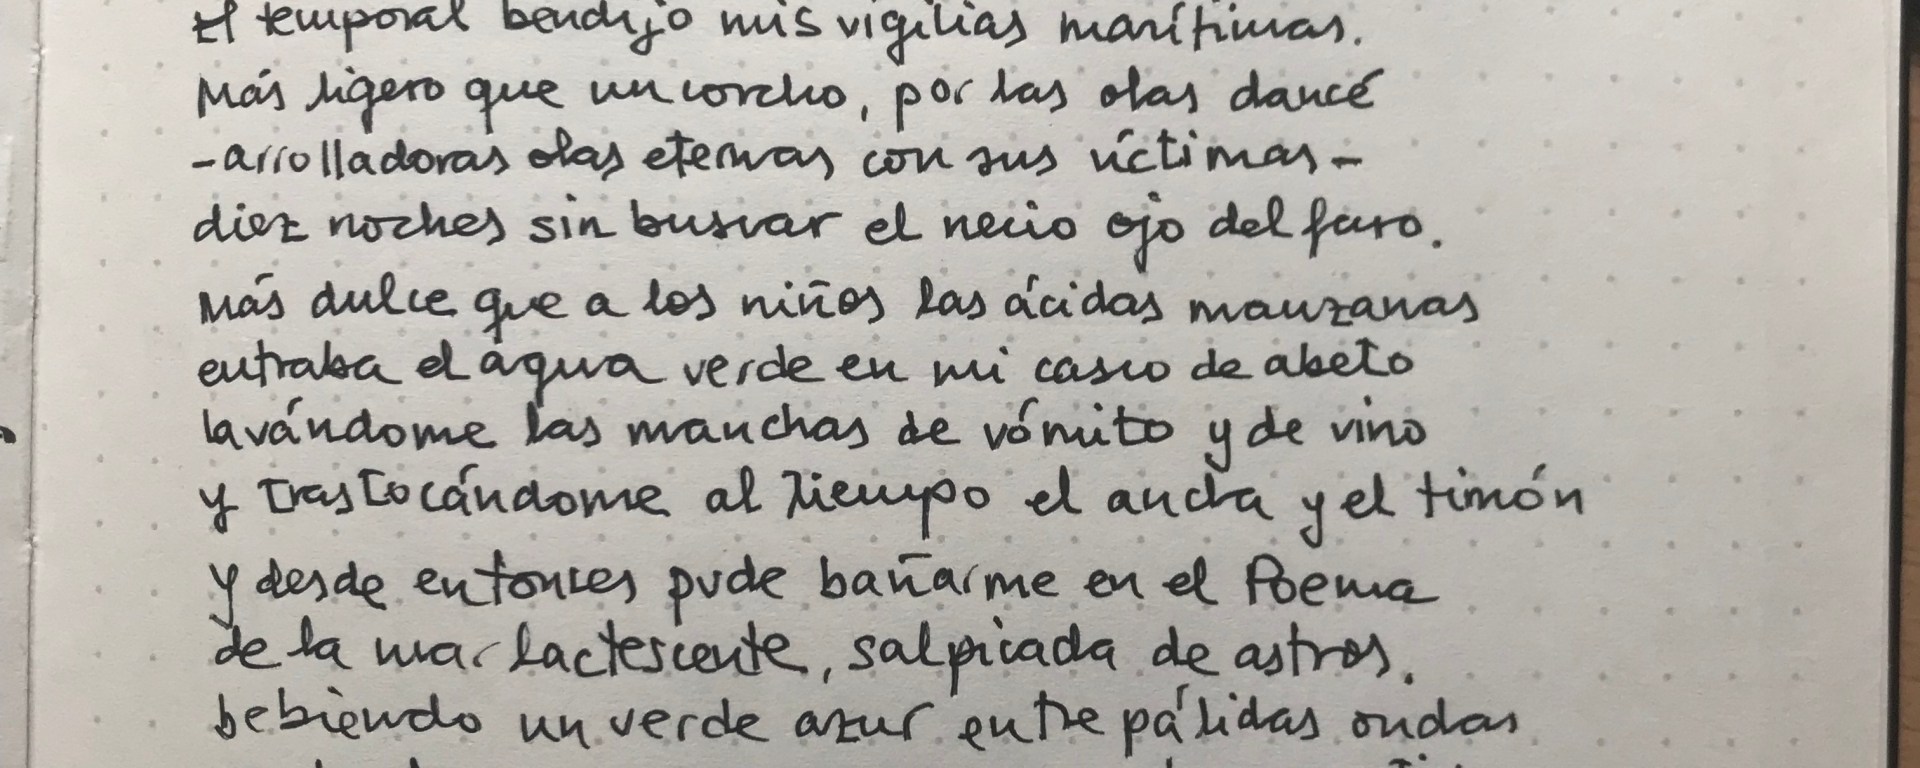 El temporal bendijo mis vigilias marítimas.
Más ligero que un corcho, por las olas dancé
-arrolladoras olas eternas con sus víctimas-
diez noches sin buscar el necio ojo del faro.
Más dulce que a los niños las ácidas manzanas
entraba el agua verde en mi casco de abeto
lavándome las manchas de vómito y de vino
y trastocándome al tiempo el ancla y el timón
y desde entonces pude bañarme en el Poema
de la mar lactescente, salpicada de astros,
bebiendo un verde azur entre pálidas ondas